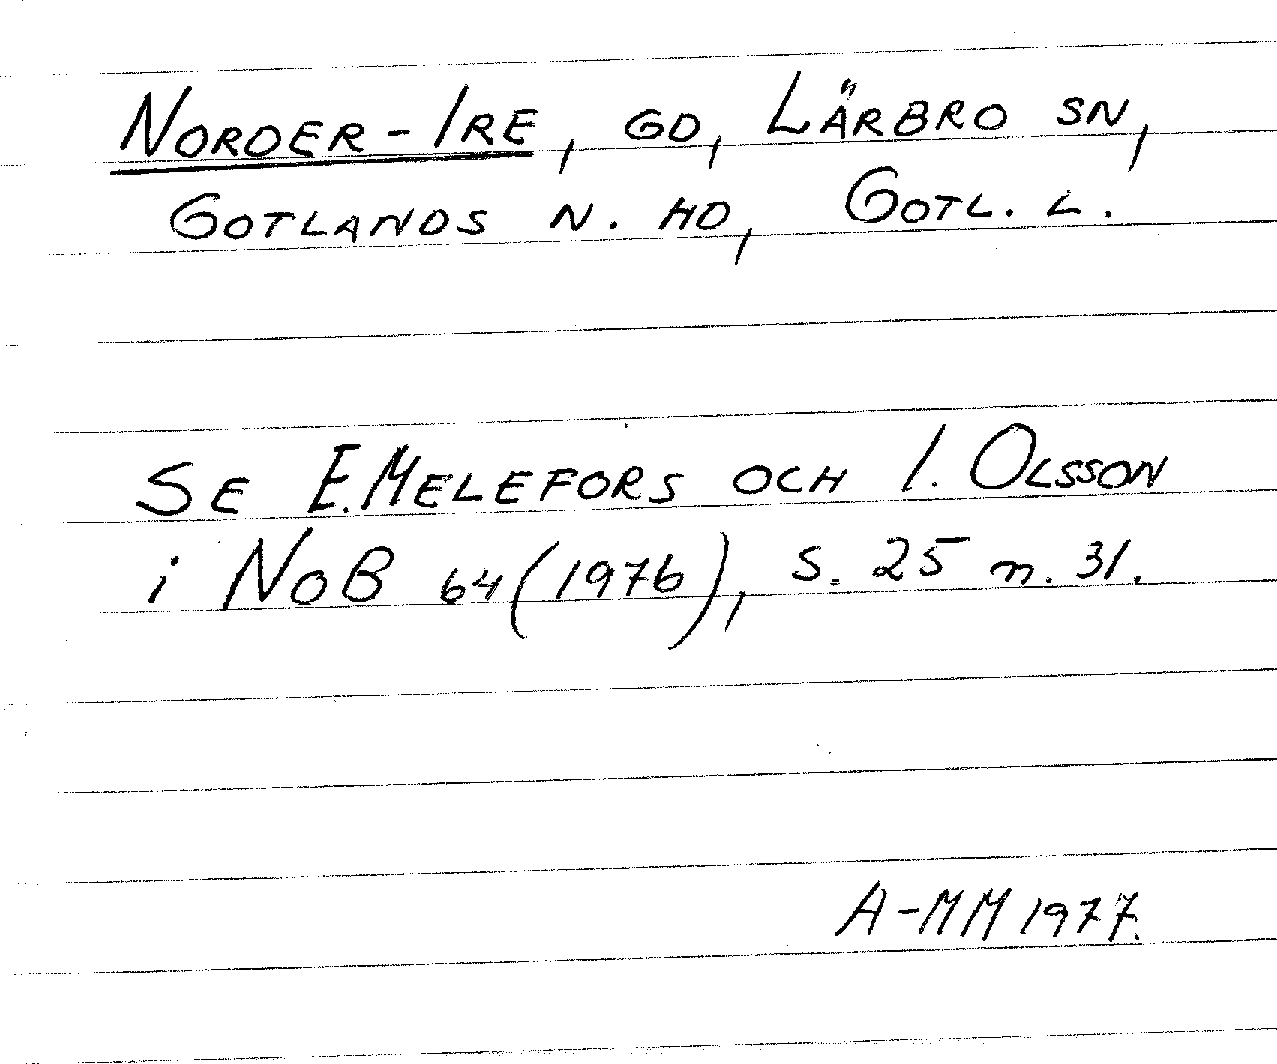 NORDER-IRE, GD, LÄRBRO SN,
GOTLANDS N. HD, GOTL. L.
SE E. MELEFORS OCH I. OLSSON
i NoB 64 (1976), S. 25 n. 31.
A-MM 1977.